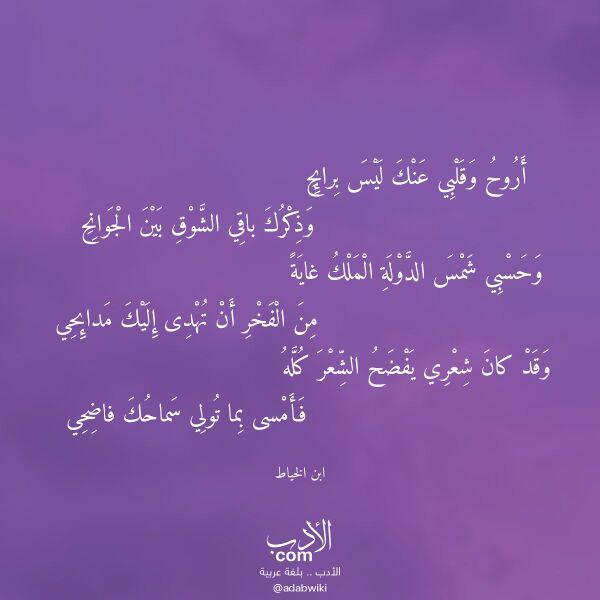 أَرُوحُ وَقَلْبِي عَنْكَ لَيْسَ بِرائِحِ
وَذِكْرُكَ باقِي الشَّوْقِ بَيْنَ الْجَوَانِحِ
وَحَسْبِي شَمْسَ الدَّوْلَةِ الْمَلْكُ غايَةً
مِنَ الْفَخْرِ أَنْ تُهْدى إِلَيْكَ مَدائِحِي
وَقَدْ كانَ شِعْرِي يَفْضَحُ الشِّعْرَ كُلَّهُ
فَأَمْسى بِما تُولِي سَماحُكَ فاضِحِي
ابن الخياط
الأدب
com
الأدب .. بلغة عربية
@adabwiki